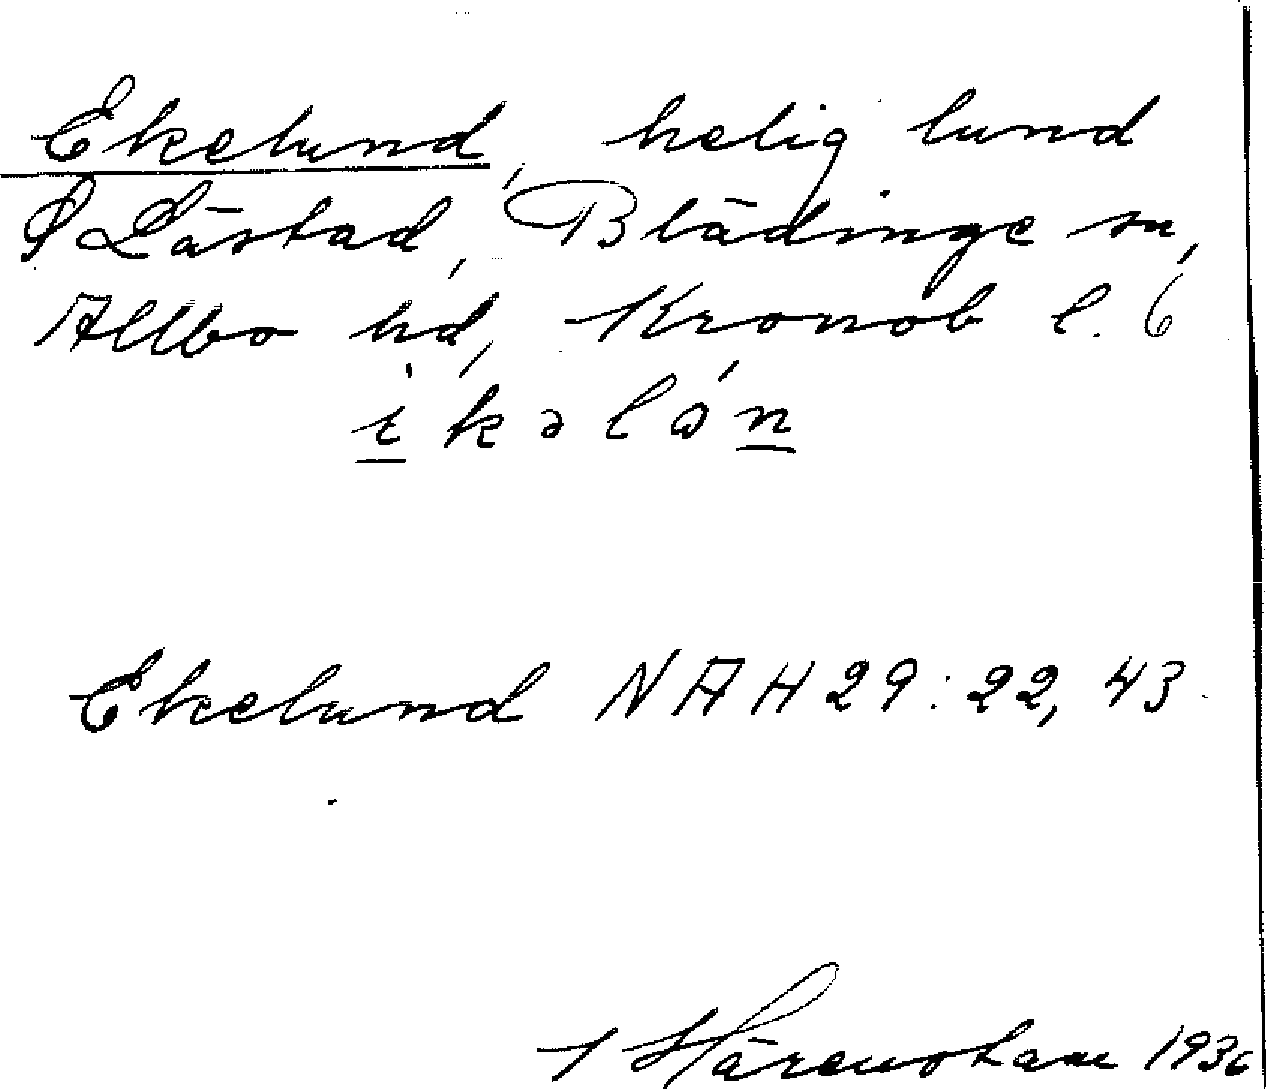 Ekelund, helig lund
S Låstad, Blädinge sn,
Allbo hd, Kronob l. 6
í k ə l ó n
Ekelund NAH 29: 22, 43
Härenstam 1936